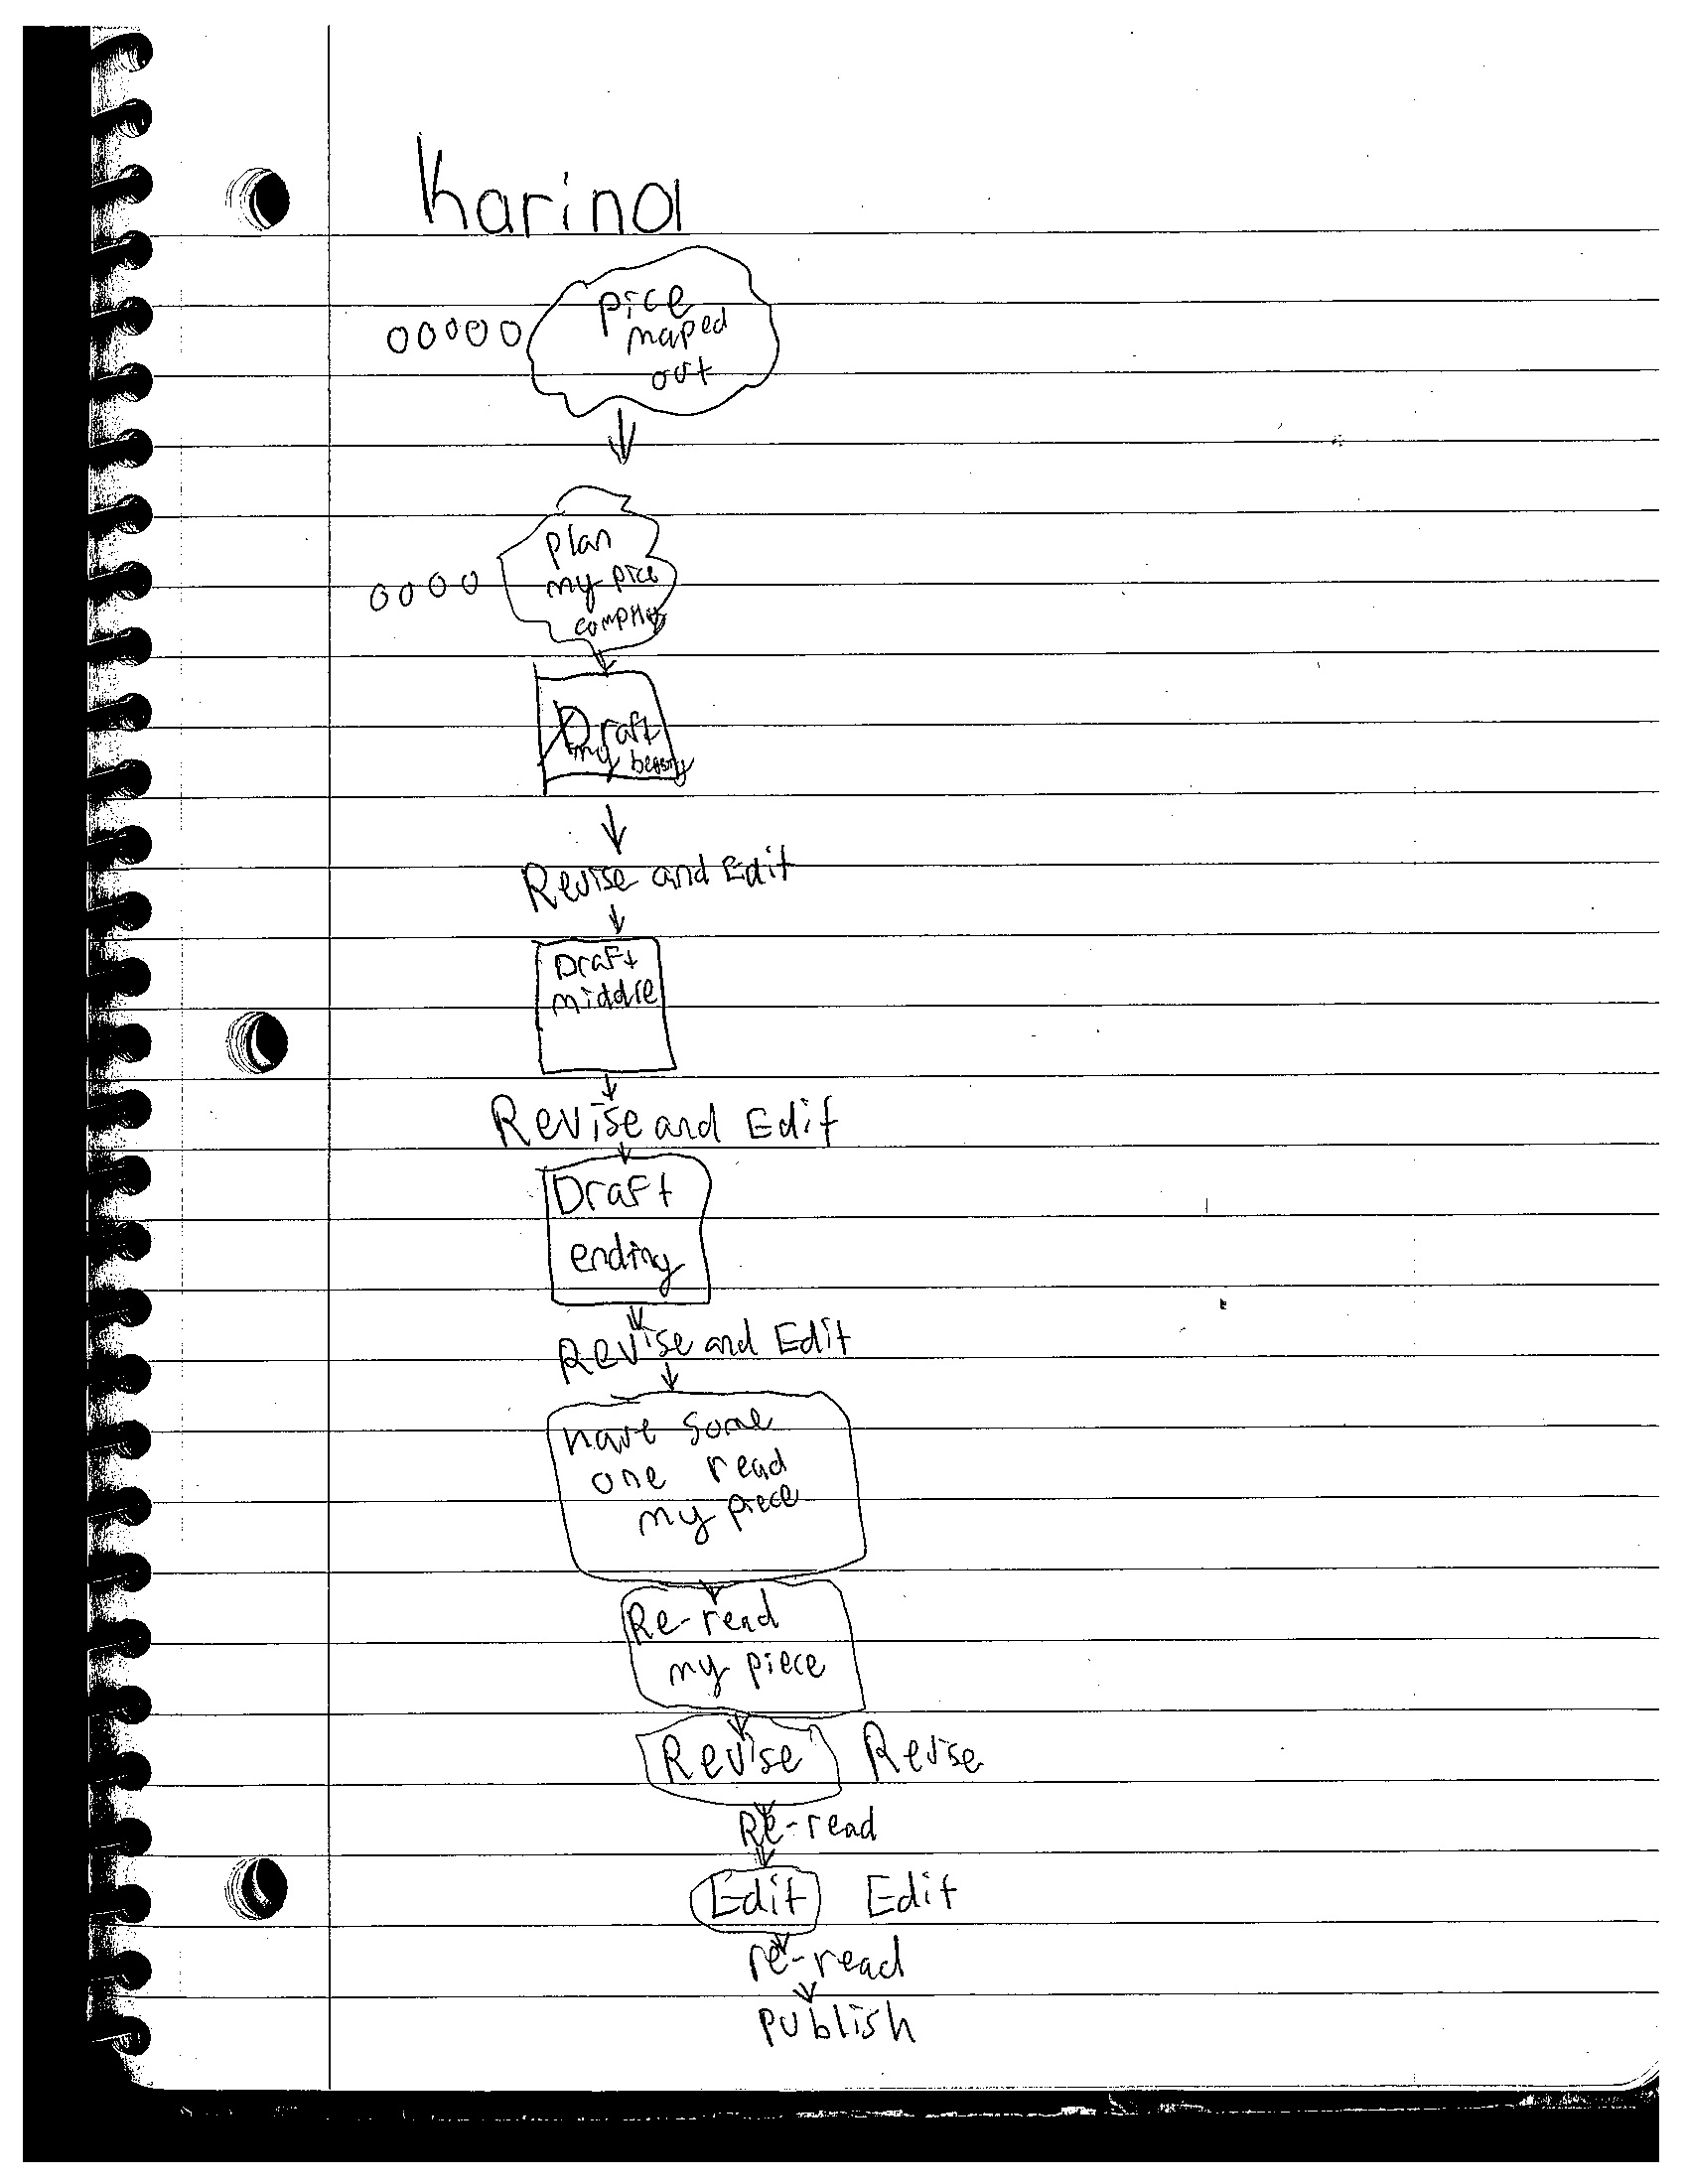 Karina
pice
maped
out
plan
my pice
Draft
my
Revise and Edit
Draft
middle
Revise and Edit
Draft
ending
Revise and Edit
have some
one read
my piece
Re-read
my piece
Revise Revise
Re-read
Edit Edit
re-read
publish